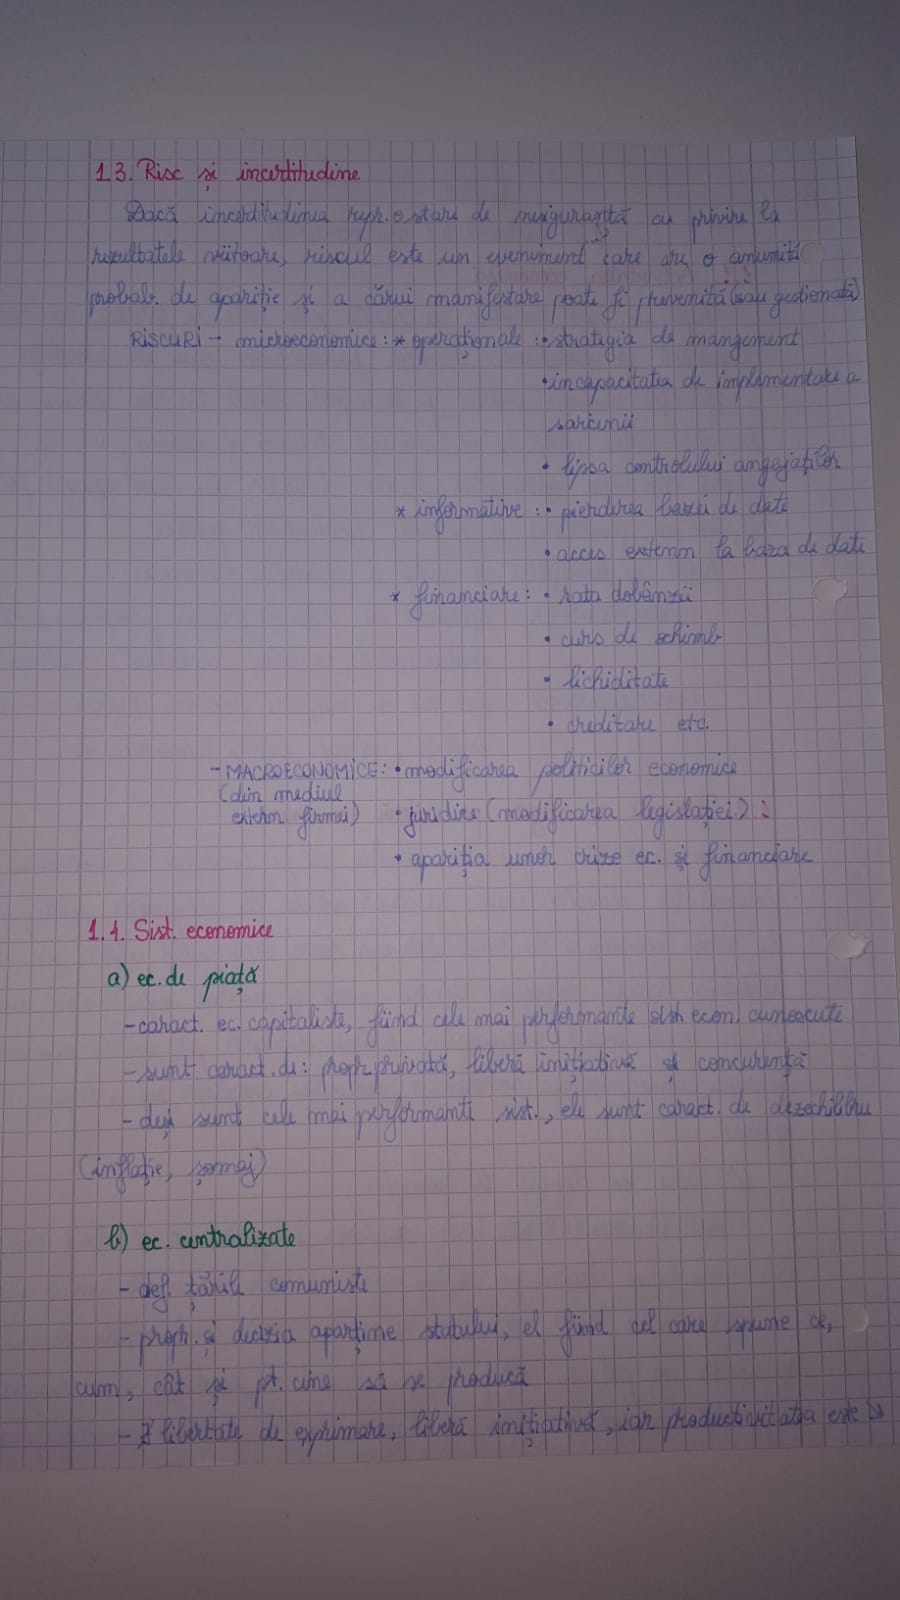 1.3. Risc și incertitudine
Dacă incertitudinea repr. o stare de nesiguranță cu privire la
rezultatele viitoare, riscul este un eveniment care are o anumită
probab. de apariție și a cărui manifestare poate fi prevenită (sau gestionată)
RISCURI - microeconomice: * operaționale: • strategia de mangement
• incapacitatea de implementare a
sarcinii
• lipsa controlului angajaților
* informative: • pierderea bazei de date
• acces extern la baza de date
* financiare: • rata dobânzii
• curs de schimb
• lichiditate
• creditare etc.
- MACROECONOMICE: • modificarea politicilor economice
(din mediul
extern firmei) • juridice (modificarea legislației)
• apariția unor crize ec. și financiare
1.4. Sist. economice
a) ec. de piață
- caract. ec. capitaliste, fiind cele mai performante sist. econ. cunoscute
- sunt caract. de: propr. privată, liberă inițiativă și concurență
- deși sunt cele mai performante sist., ele sunt caract. de dezechilibru
(inflație, șomaj)
b) ec. centralizate
- def. țările comuniste
- propr. și decizia aparține statului, el fiind cel care spune ce,
cum, cât și pt. cine să se producă
- ∄ libertate de exprimare, liberă inițiativă, iar productivitatea este ↘